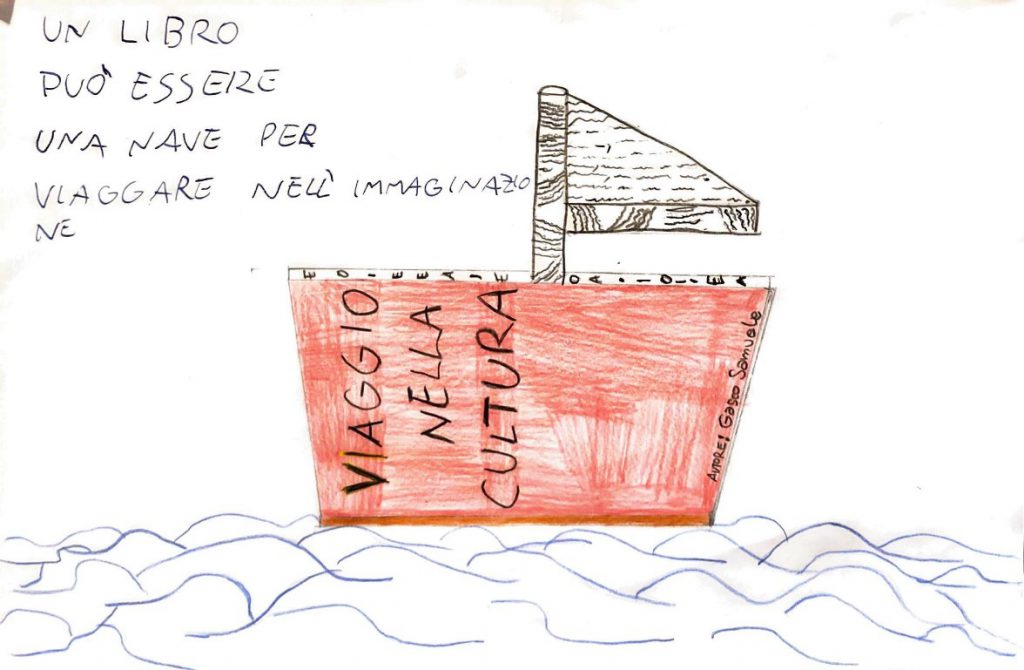 UN LIBRO
PUÒ ESSERE
UNA NAVE PER
VIAGGARE NELL' IMMAGINAZIO
NE
VIAGGIO
NELLA
CULTURA
AUTORE: Gasco Samuele